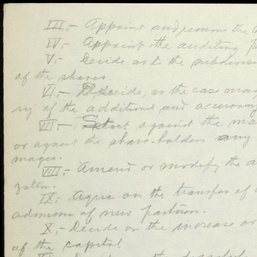 III.- Appoint and remove the
IV.- Appoint the auditing
V.- Decide as to the subdivision
of the shares.
VI.- Decide, as the case may
ry of the additional and accessory
VII.- Start against the ma
or against the share-holders any
mages.
VIII.- Amend or modify the a
zation.
IX.- Agree on the transfer of
admission of new partners.
X.- Decide on the increase or
of the capital